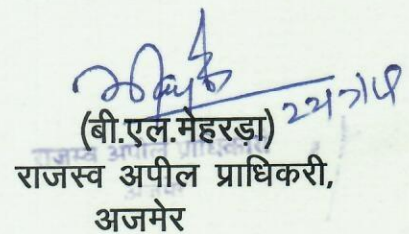 (बी.एल.मेहरड़ा)
राजस्व अपील प्राधिकरी,
अजमेर